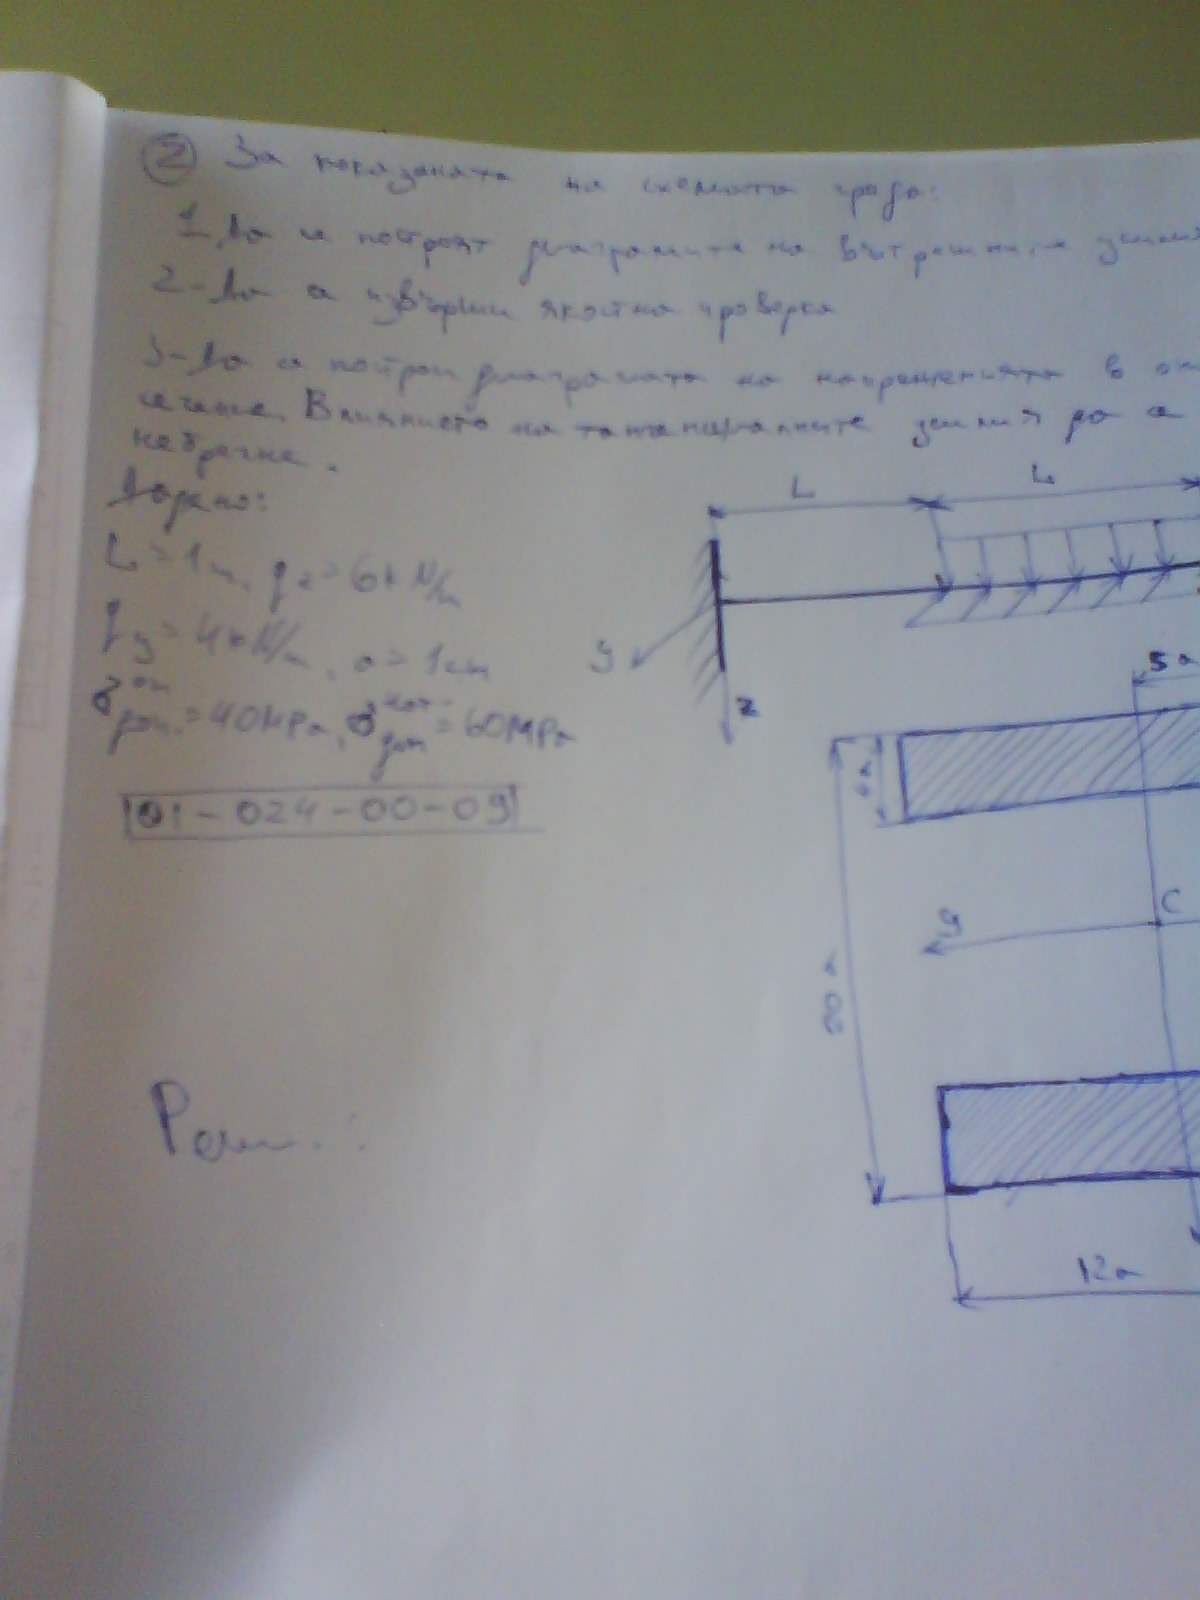 ② За показаната на схемата греда:
1. Да се построят диаграмите на вътрешните усилия
2- Да се извърши якостна проверка
3- Да се построи диаграмата на напреженията в оп
сечение. Влиянието на тангенциалните усилия да се
небрегне.
Дадено:
L = 1m, qz = 6kN/m
qy = 4kN/m, a = 1cm
σ оп доп. = 40MPa, σ нат. доп = 60MPa
01-024-00-09
L L
y
z
5a
y C
20a
12a
Реш.: